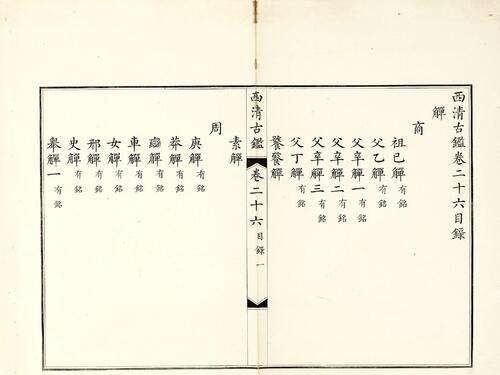 西清古鑑卷二十六目錄
觶
商
祖己觶有銘
父乙觶有銘
父辛觶一有銘
父辛觶二有銘
父辛觶三有銘
父丁觶有銘
饕餮觶
西清古鑑 卷二十六 目錄 一
素觶
周
庚觶有銘
莽觶有銘
觶有銘
車觶有銘
女觶有銘
邢觶有銘
史觶有銘
舉觶一有銘